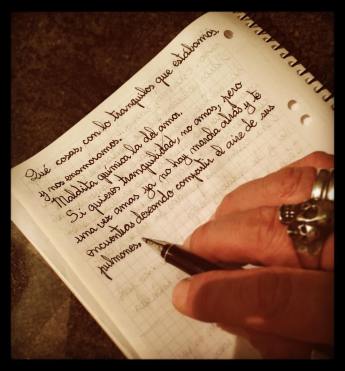 Qué cosas, con lo tranquilos que estábamos
y nos enamoramos.
Maldita química la del amor.
Si quieres tranquilidad, no amas, pero
una vez amas ya no hay marcha atrás y te
encuentras deseando compartir el aire de sus
pulmones.